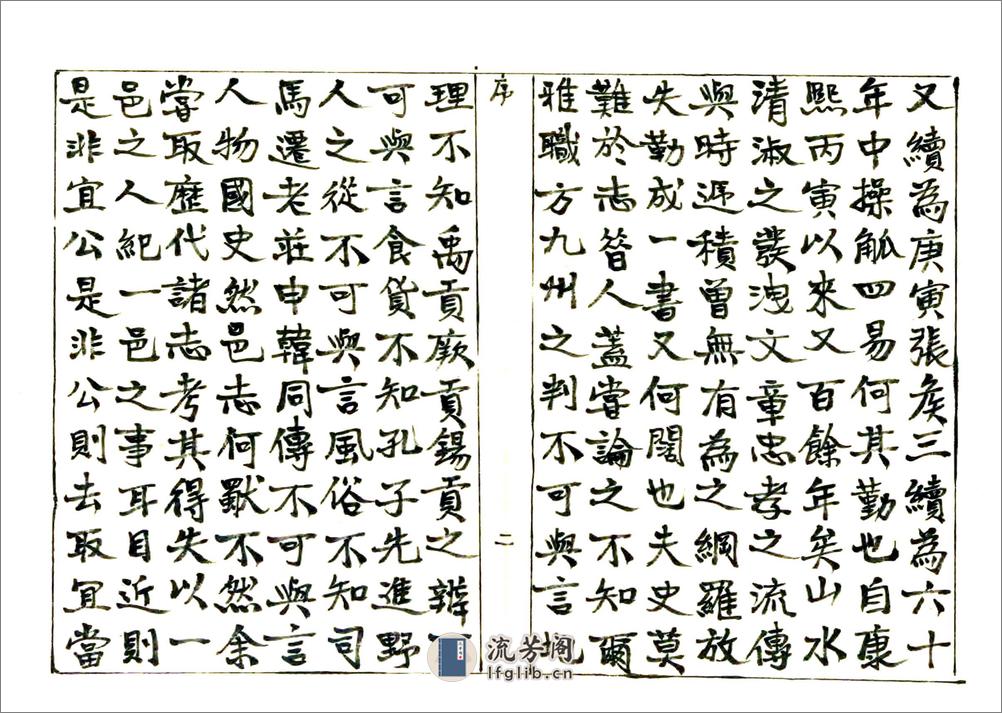 又續為庚寅張矦三續為六十
年中操觚四易何其勤也自康
熙丙寅以來又百餘年矣山水
清淑之發洩文章忠孝之流傳
與時遞積曾無有為之網羅放
失勤成一書又何闊也夫史莫
難於志昔人蓋嘗論之不知爾
雅職方九州之判不可與言
序
二
理不知禹貢厥貢錫貢之辨
可與言食貨不知孔子先進野
人之從不可與言風俗不知司
馬遷老莊申韓同傳不可與言
人物國史然邑志何獸不然余
嘗取歷代諸志考其得失以一
邑之人紀一邑之事耳目近則
是非宜公是非公則去取宜當
流芳閣
lfglib.cn